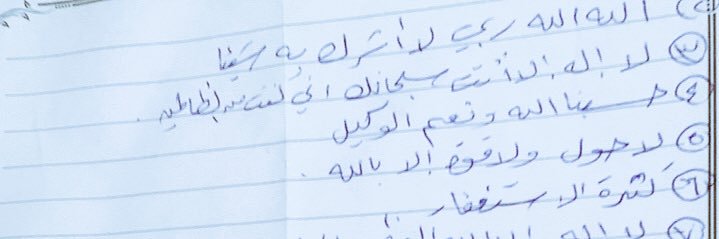 الله الله ربي لا أشرك به شيئا
٣ لا إله إلا أنت سبحانك اني كنت من الظالمين .
٤ حسبنا الله ونعم الوكيل
٥ لا حول ولا قوة إلا بالله .
٦ كثرة الاستغفار ..
٧ لا إله إلا الله